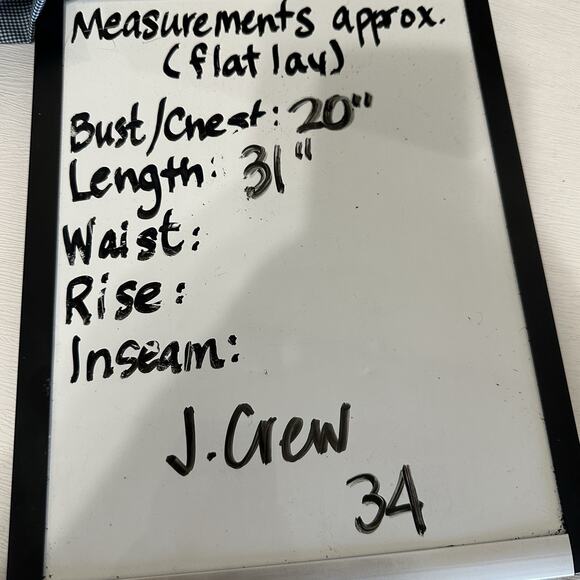 Measurements approx.
(flat lay)
Bust/Chest: 20"
Length: 31"
Waist:
Rise:
Inseam:
J.Crew
34